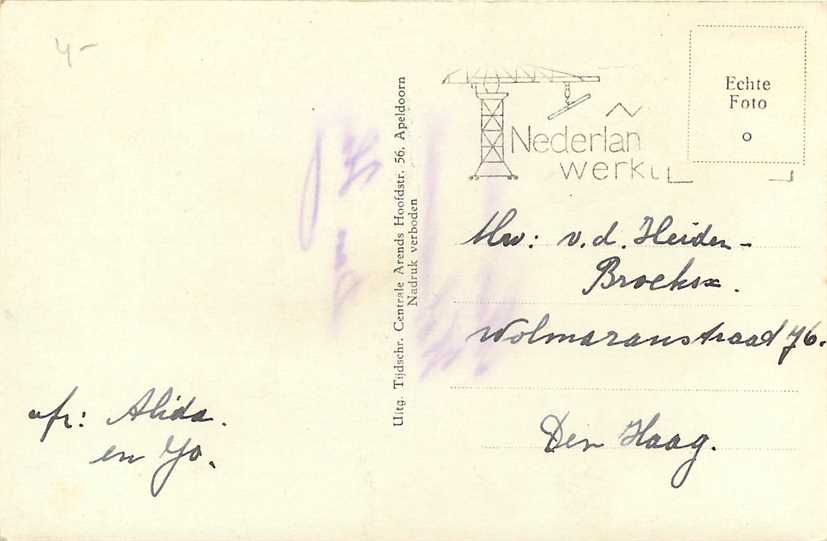 4-
Echte
Foto
Nederlan
werkt
Uitg. Tijdschr. Centrale Arends Hoofdstr. 56, Apeldoorn
Nadruk verboden
Mw: v.d. Heiden-
Broeksx.
Wolmaranstraad 76.
Den Haag.
afz: Alida.
en Jo.